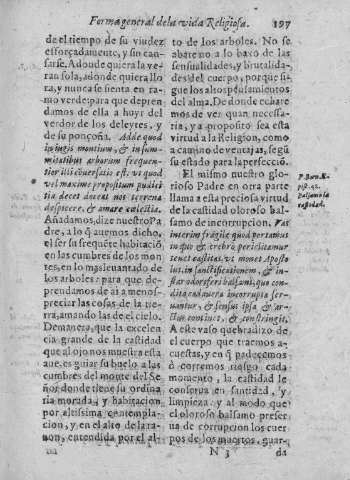 Forma general de la vida Religiosa. 197
de el tiempo de su viudez
esforçadamente, y sin can-
sarse. A donde quiera la ve-
ran sola, a donde quiera llo
ra, y nunca se sienta en ra-
mo verde: para que depren
damos de ella a huyr del
verdor de los deleytes, y
de su ponçoña. Adde quod
in iugis montium, & in sum-
mitatibus arborum frequen-
tior illi conuersatio est. vt quod
vel maxime propositum pudici
tia decet doceat nos terrena
despicere, & amare cælestia.
Añadamos, dize nuestro Pa
dre, a lo q̃ auemos dicho,
el ser su frequẽte habitaciõ
en las cumbres de los mon
tes, en lo mas leuantado de
los arboles: para que de-
prendamos de ai a menos-
preciar las cosas de la tie-
rra, amando las de el cielo.
Demanera, que la excelen
cia grande de la castidad
que al ojo nos muestra esta
aue, es guiar su buelo a las
cumbres del monte del Se
ñor, donde tiene su ordina
ria morada, y habitacion
por altissima contempla-
cion, y en el alto de la ra-
zon, entendida por el al-
to de los arboles. No se
abate no a lo baxo de las
sensualidades, y brutalida-
des del cuerpo, porque si-
gue los altos pẽsamientos
del alma. De donde echare
mos de ver quan necessa-
ria, y a proposito sea esta
virtud a la Religion, como
a camino de ventajas, segũ
su estado para la perfecció.
El mismo nuestro glo-
rioso Padre en otra parte
llama a esta preciosa virtud
de la castidad oloroso bal-
samo de incorrupcion. Vas
interim fragile quod portamus
in quo & crebrò periclitamur
tenet castitas. vt monet Aposto
lus, in sanctificationem, & in-
star odoriferi balsami, quo con
dita cadauera incorrupta ser-
uantur, & sensus ipsa & ar-
tus continet, & constringit.
A este vaso quebradizo de
el cuerpo que traemos a-
cuestas, y en q̃ padecemos
ò corremos riesgo cada
momento, la castidad le
conserua en santidad, y
limpieza: y al modo que
el oloroso balsamo preser
ua de corrupcion los cuer
pos de los muertos, guar-
P. Bern. E-
pist. 42.
Balsamo la
castidad.
N 3 da